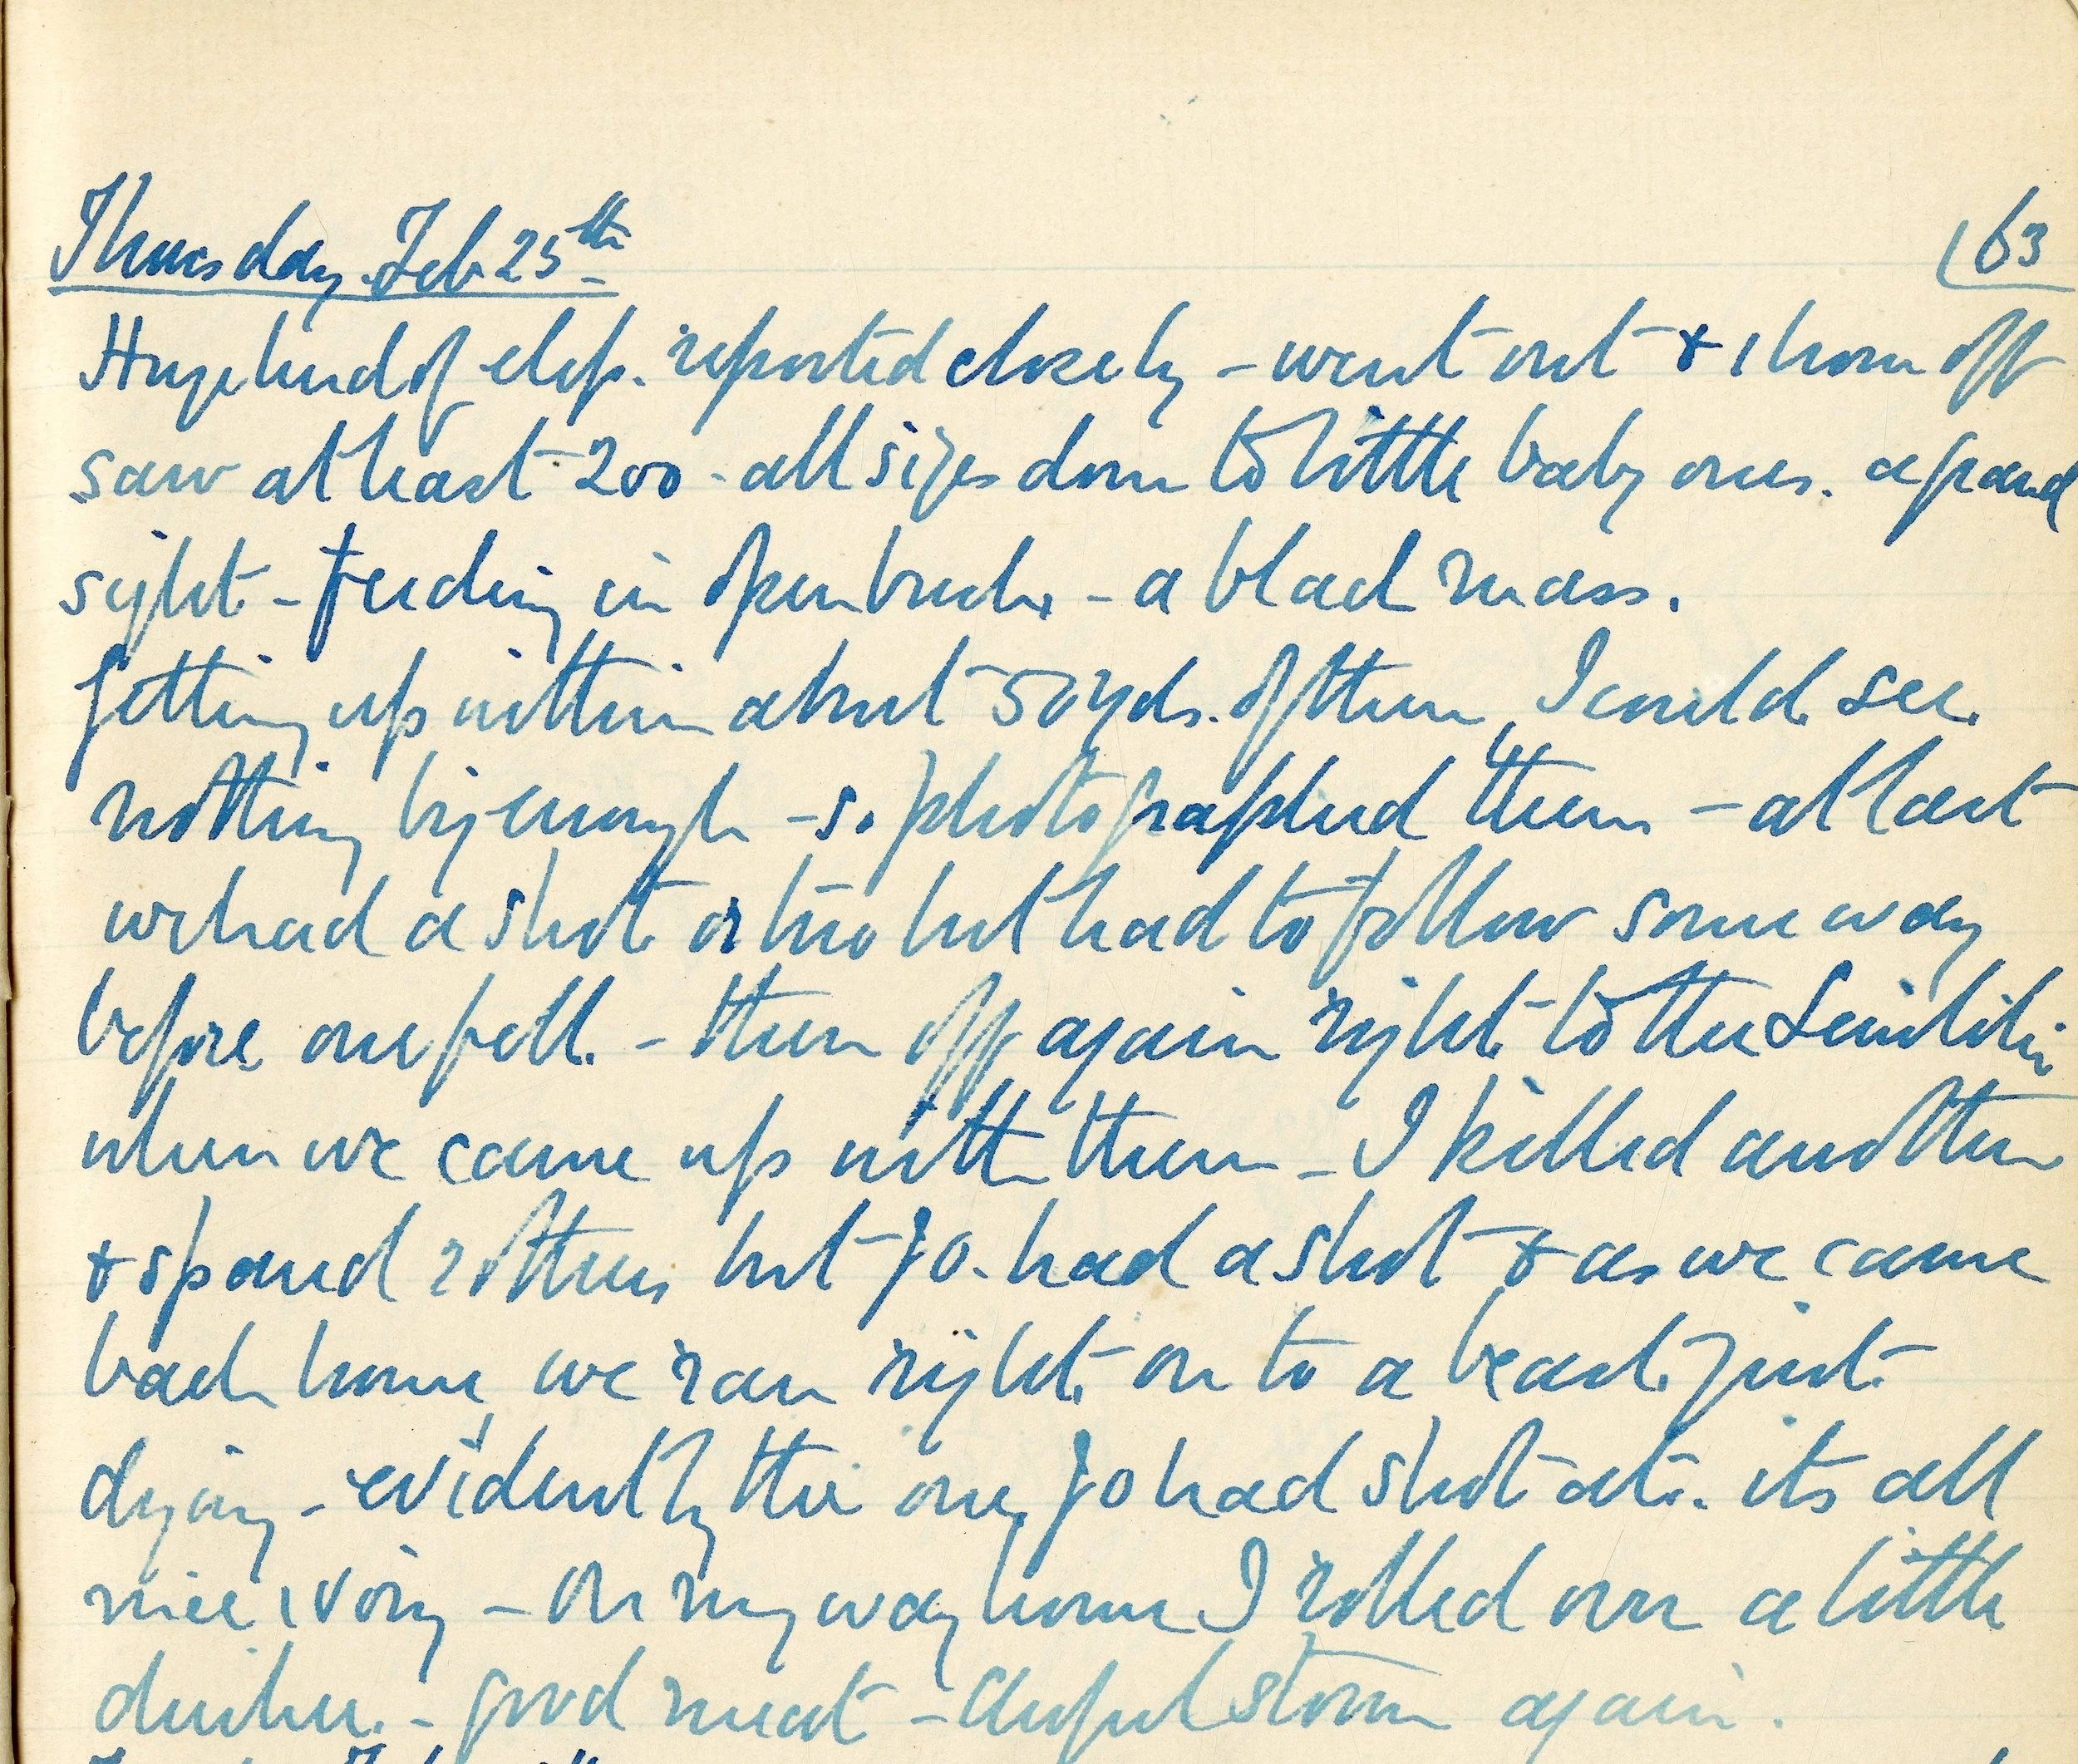 Thursday Feb 25th
163
Huge herd of elep. reported close by - went out & 1 hour off
saw at least 200 - all sizes down to little baby ones. a grand
sight - feeding in open bush - a black mass.
Getting up within about 50 yds. of them, I could see
nothing big enough - so photographed them - at last
we had a shot or two but had to follow some way
before one fell. - then off again right to the
when we came up with them - I killed another
& spared 2 others but Jo. had a shot & as we came
back home, we ran right on to a beast just
dying - evidently the one Jo had shot at. its all
nice ivory - On my way home I rolled over a little
duiker. - good meat - awful storm again.